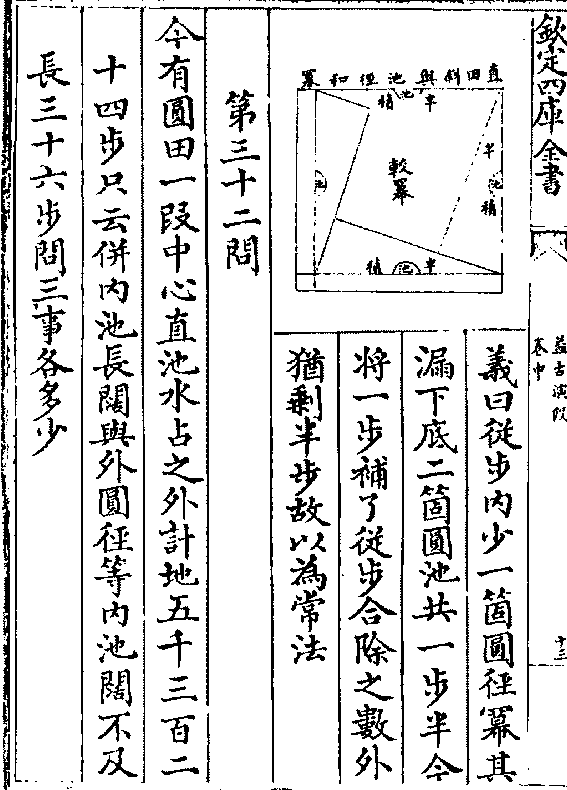 欽定四庫全書
益古演段
卷中
十三
直田斜與池徑和羃
半池補
較羃
半池補
池
半池補
義曰從步内少一箇圓徑羃其
漏下底二箇圓池共一步半今
將一步補了從步合除之數外
猶剩半步故以為常法
第三十二問
今有圓田一段中心直池水占之外計地五千三百二
十四步只云併内池長闊與外圓徑等内池闊不及
長三十六步問三事各多少